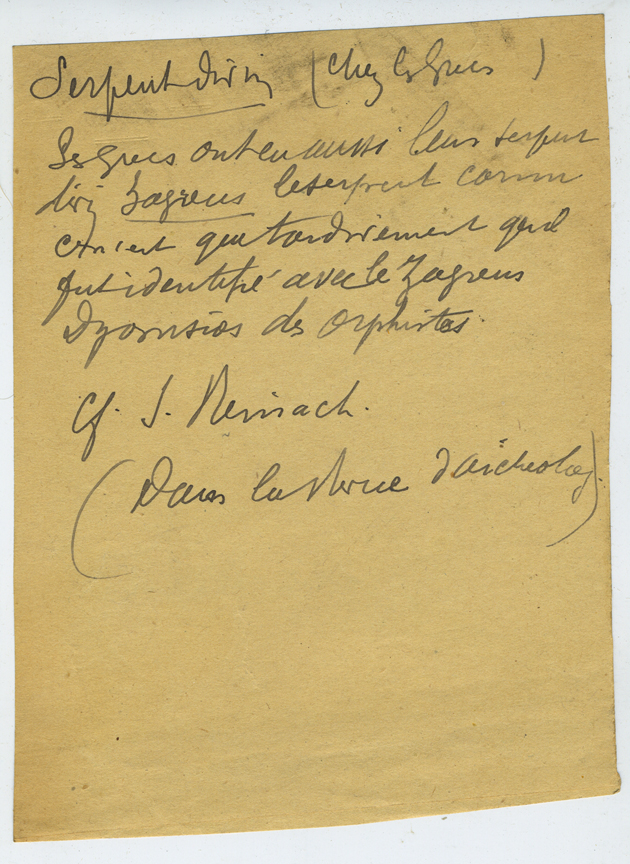 Serpent divin (chez les Grecs)
Les grecs ont eu aussi leur serpent
divin Zagreus le serpent cornu
ce n'est que tardivement qu'il
fut identifié avec le Zagreus
Dyonisios des orphistes.
Cf. S. Reinach.
(Dans la Revue d'archeolog)